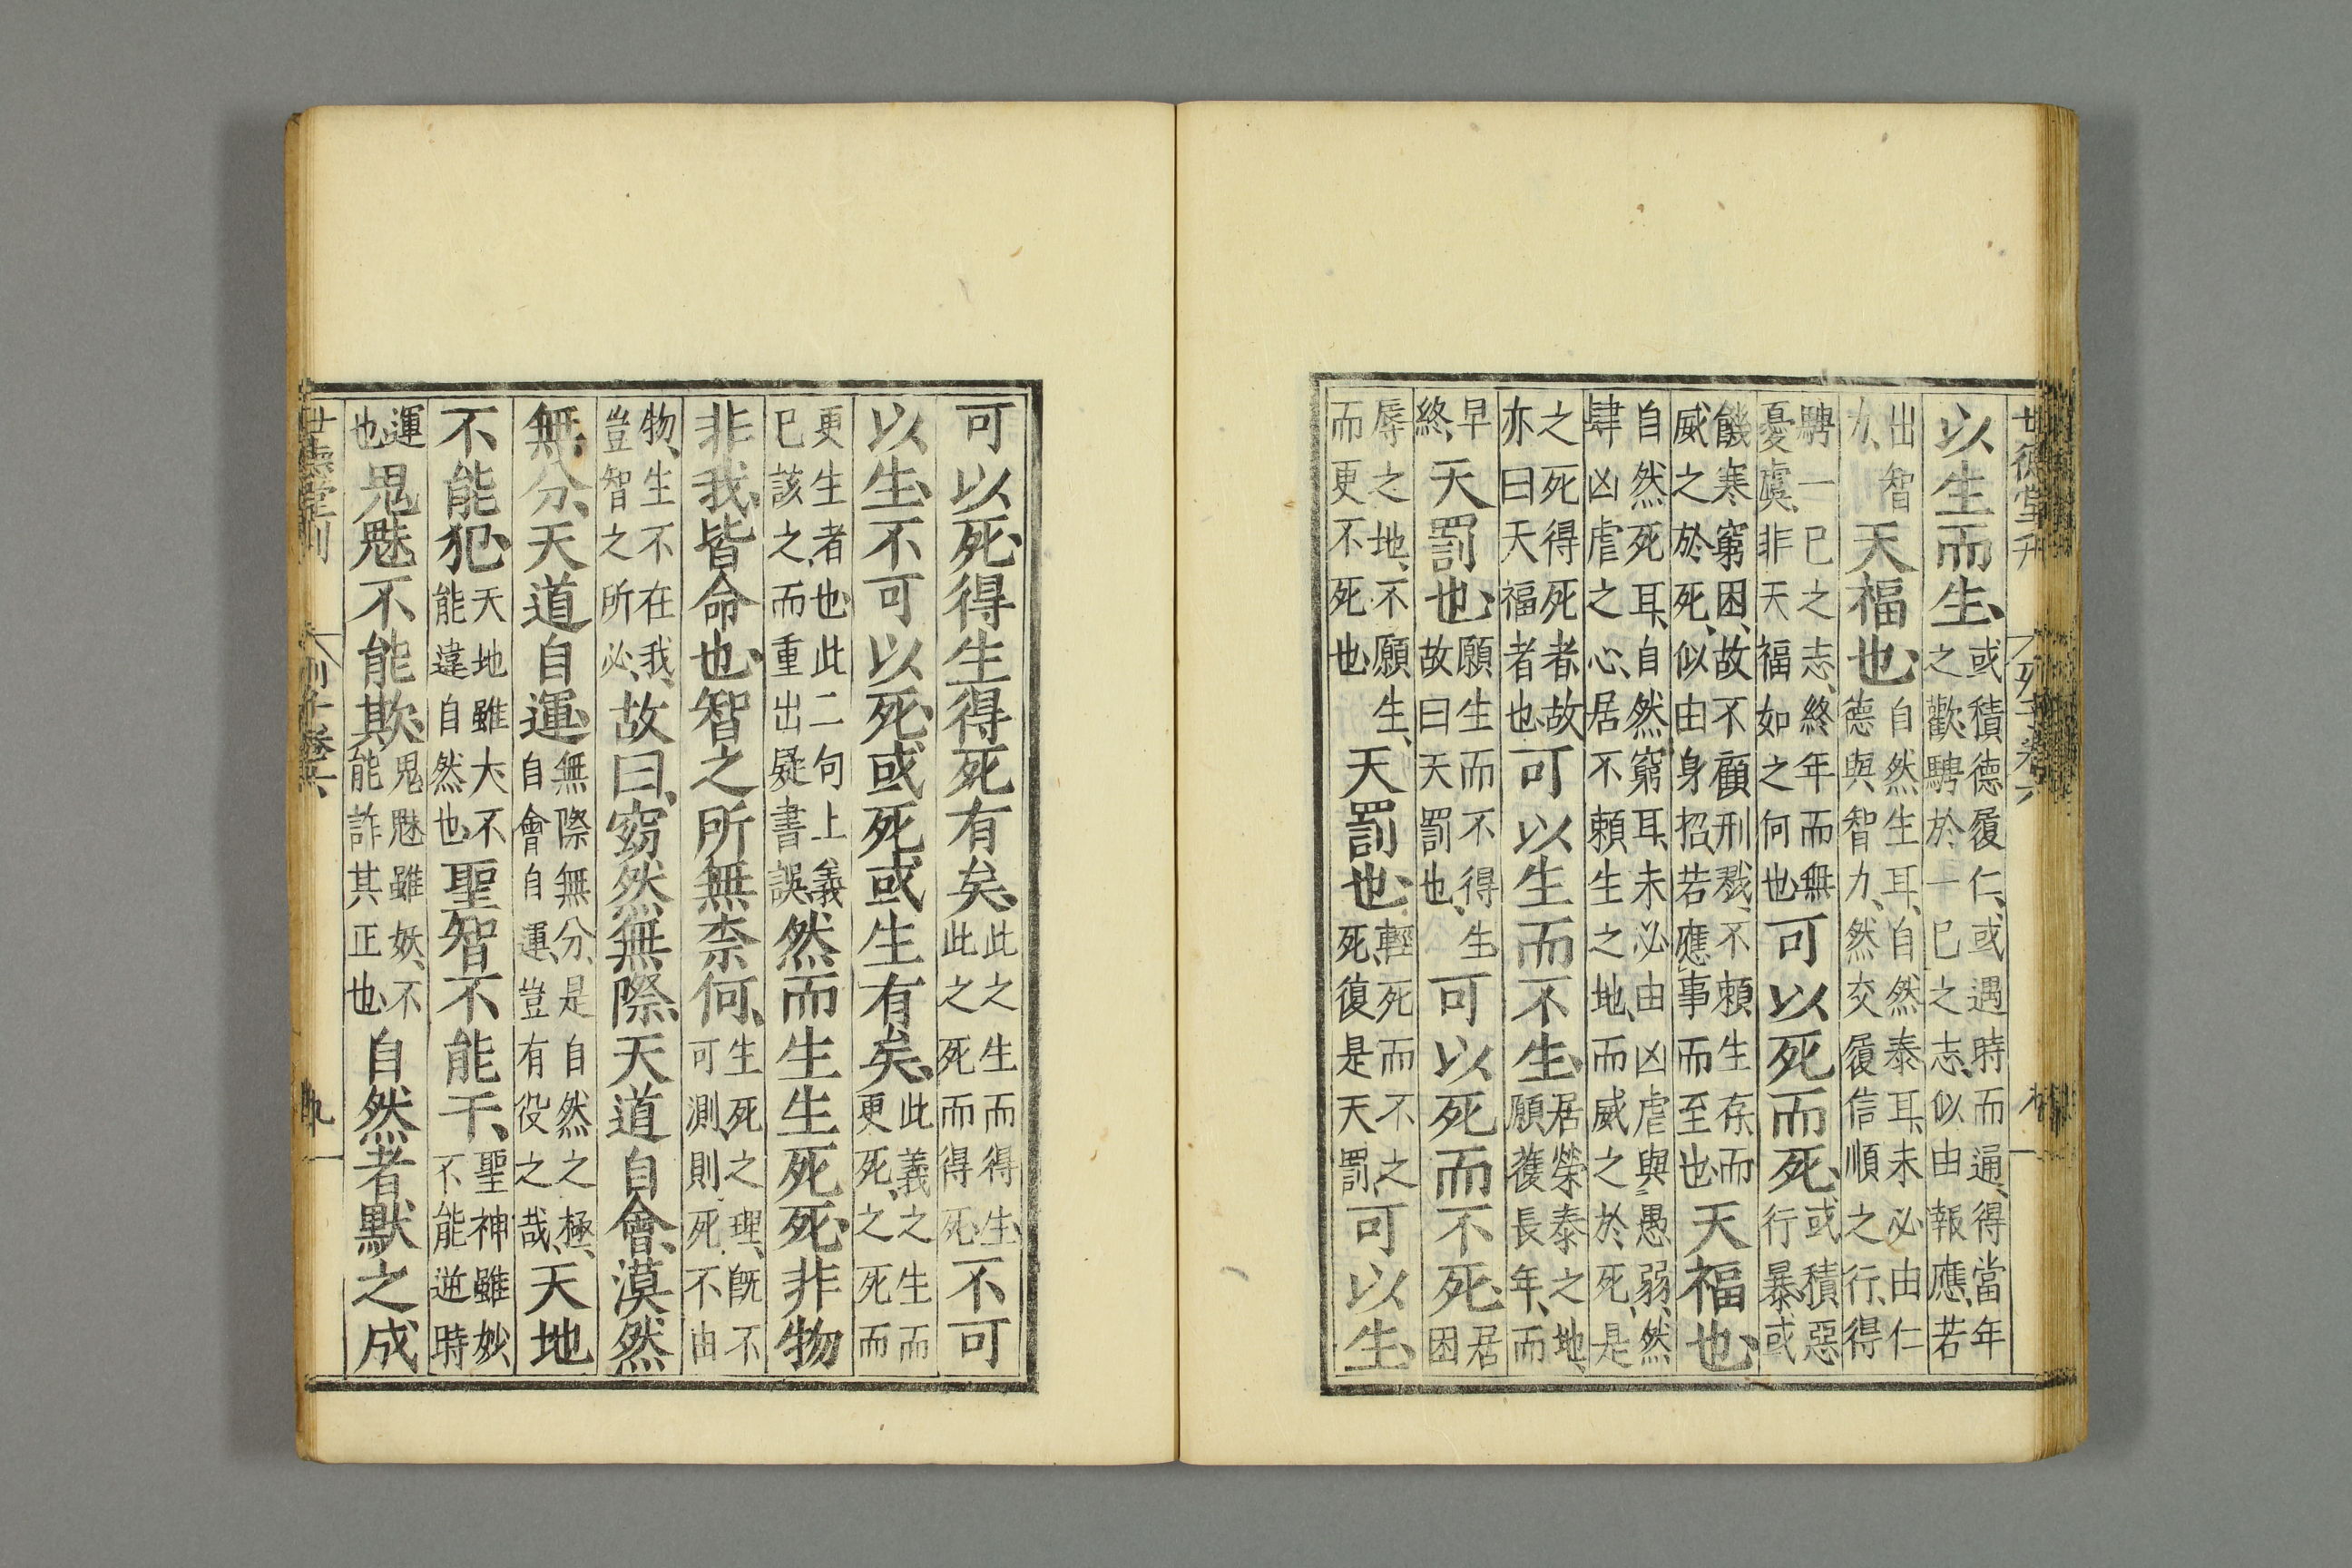 世德堂刊 列子卷六
以生而生、或積德履仁、或遇時而通、得當年之歡、騁於一已之志、似由報應、若
出智力、天福也、自然生耳、自然泰耳、未必由仁德與智力、然交履信順之行、得
騁一已之志、終年而無憂虞、非天福如之何也可以死而死、或積惡行暴或
饑寒窮困、故不顧刑戮、不賴生存而威之於死、似由身招若應事而至也天福也、
自然死耳、自然窮耳、未必由凶虐與愚弱、然肆凶虐之心、居不賴生之地、而威之於死、是
之死得死者、故亦曰天福者也可以生而不生、居榮泰之地、願獲長年、而
早終、天罰也、願生而不得生故曰天罰也、可以死而不死、居困
辱之地、不願生、而更不死也天罰也、輕死而不之死、復是天罰、可以生、
可以死、得生得死有矣、此之生而得生、此之死而得死不可
以生、不可以死、或死或生有矣、此義之生而更死、之死而
更生者也、此二句上義已該之、而重出疑書誤、然而生生死死、非物
非我、皆命也、智之所無柰何、生死之理、旣不可測、則死不由
物、生不在我、豈智之所必、故曰、窈然無際、天道自會、漠然
無分、天道自運、無際無分、是自然之極、自會自運、豈有役之哉、天地
不能犯、天地雖大、不能違自然也聖智不能干、聖神雖妙、不能逆時
運也、鬼魅不能欺、鬼魅雖妖、不能詐其正也自然者默之成
世德堂刊 列子卷六 九